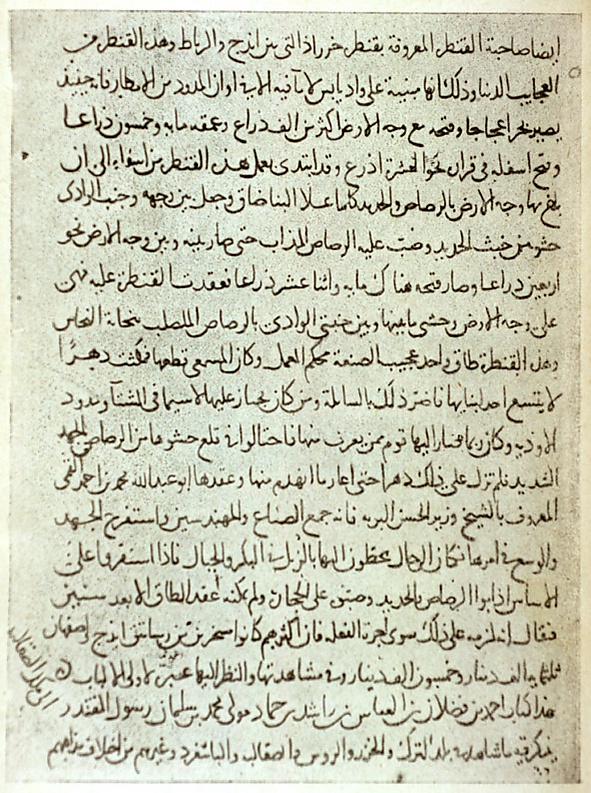 ايضا صاحبة القنطرة المعروفة بقنطرة خرزاذ التي بين ايذج والرباط وهذه القنطرة من
العجايب الدنيا وذلك انها مبنية على واد يابس لا مآ فيه الا في اوان المدود من الامطار فانه حينيذ
يصير بحرا عجاجا وفتحه مع وجه الارض اكثر من الف ذراع وعمقه مايه وخمسون ذراعا
وفتح اسفله في قراره نحو العشرة اذرع وقد ابتدى بعمل هذه القنطرة من اسفله الى ان
بلغ بها وجه الارض بالرصاص والحديد كلما علا البنا ضاق وجعل بين وجهه وجنب الوادي
حشو من خبث الحديد وصب عليه الرصاص المذاب حتى صار بينه وبين وجه الارض نحو
اربعين ذراعا وصار فتحه هناك مايه واثنا عشر ذراعا فعقدت القنطرة عليه فهي
على وجه الارض وحشي ما بينها وبين جنبتي الوادي بالرصاص المصلب بنحاتة النحاس
وهذه القنطرة طاق واحد عجيب الصنعة محكم العمل وكان المسمعي قطعها فمكثت دهرًا
لا يتسع احد لبنايها فاضر ذلك بالسابلة ومن كان يجتاز عليها لا سيما في الشتآ ومدود
الاوديه وكان ربما صار اليها قوم ممن يعرف منها فاحتالوا في قلع حشوها من الرصاص بالجهد
الشديد فلم تزل على ذلك دهرا حتى اعاد ما انهدم منها وعقدها ابو عبدالله محمد بن احمد القمي
المعروف بالشيخ وزير الحسن البويه فانه جمع الصناع والمهندسين واستفرغ الجهد
والوسع في امرها فكان الرجال يحطون اليها بالزبل في البكر والحبال فاذا استقروا على
الاساس اذابوا الرصاص بالحديد وصبوه على الحجارة ولم يمكنه عقد الطاق الا بعد سنين
فيقال انه لزمه على ذلك سوى اجرة الفعله فان اكثرهم كانوا مسخرين من رساتيق ايذج واصفهان
ثلثماية الف دينار وخمسون الف دينار وفي مشاهدتها والنظر اليها عبرة لاولي الالباب
هذا كتاب احمد بن فضلان بن العباس بن راشد بن حماد مولى محمد بن سلمان رسول المقتدر
الى ملك الصقالبه
يذكر فيه ما شاهد في بلد الترك والخزر والروس والصقالبه والباشغرد وغيرهم من اختلاف مذاهبهم